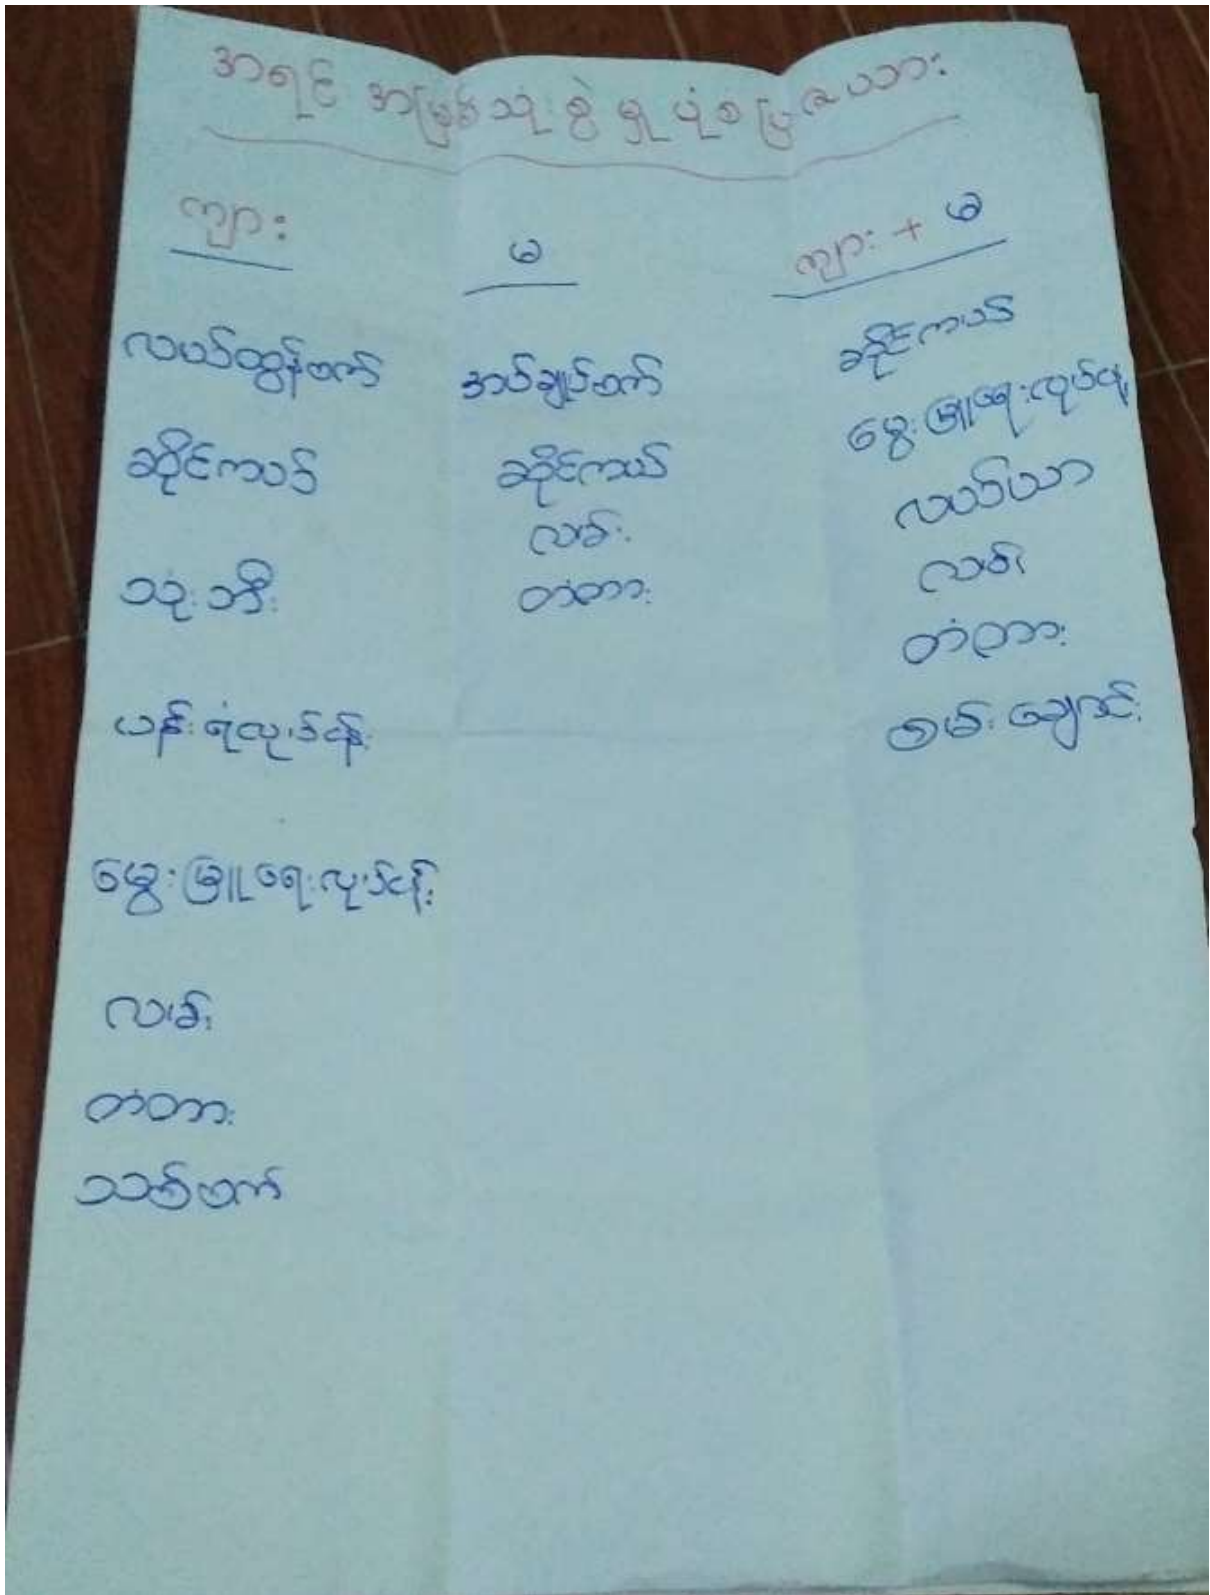 အရင်းအမြစ်သုံးစွဲမှုပုံစံပြဇယား
ကျား
မ
ကျား + မ
လယ်ထွန်စက်
ဆိုင်ကယ်
သုံးဘီး
ပန်းရံလုပ်ငန်း
မွေးမြူရေးလုပ်ငန်း
လမ်း
တံတား
သစ်စက်
အပ်ချုပ်စက်
ဆိုင်ကယ်
လမ်း
တံတား
ဆိုင်ကယ်
မွေးမြူရေးလုပ်ငန်း
လယ်ယာ
လမ်း
တံတား
စမ်းချောင်း